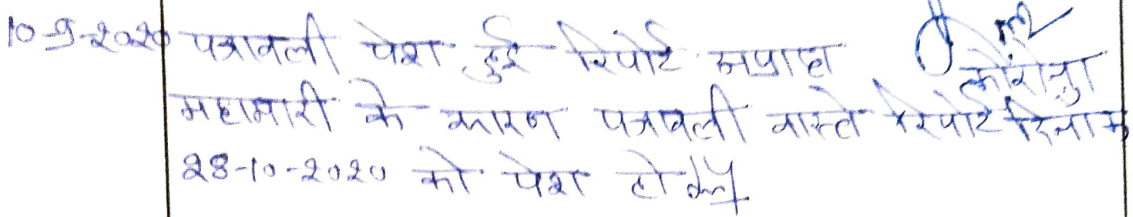 10-9-2020 पत्रावली पेश हुई रिपोर्ट अप्राप्त कोरोना
महामारी के कारण पत्रावली वास्ते रिपोर्ट दिनांक
28-10-2020 को पेश हो